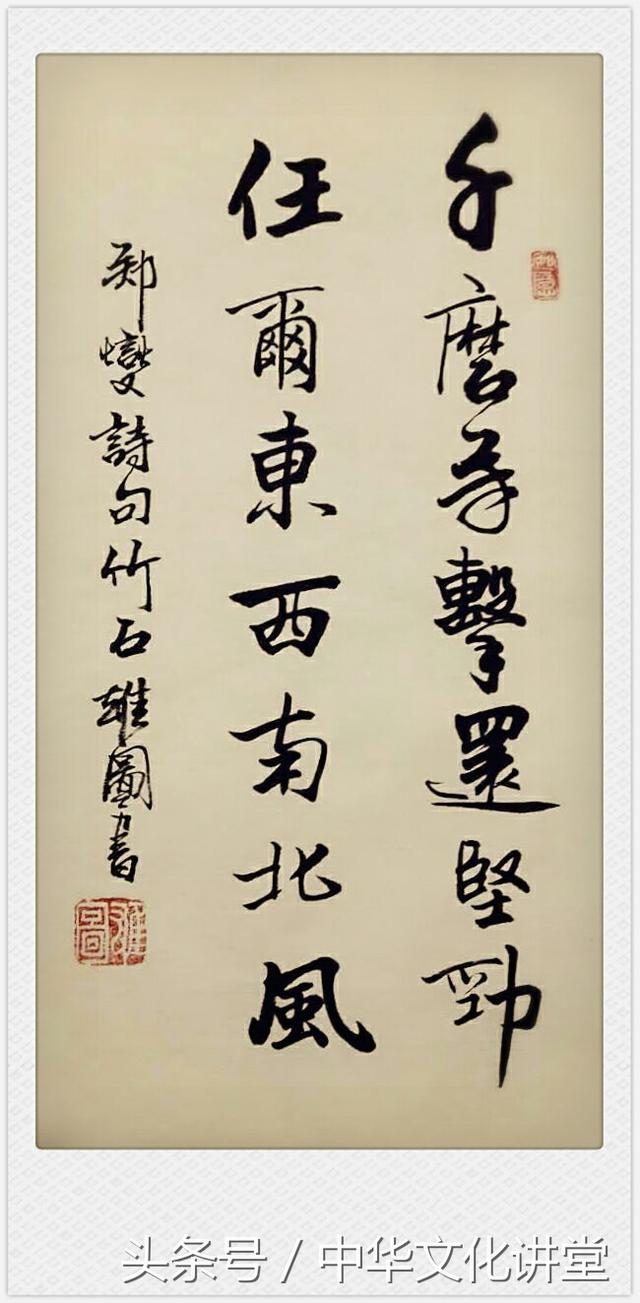 千磨萬擊還堅勁
任爾東西南北風
鄭燮詩句竹石雄圖書
雄圖
头条号 / 中华文化讲堂